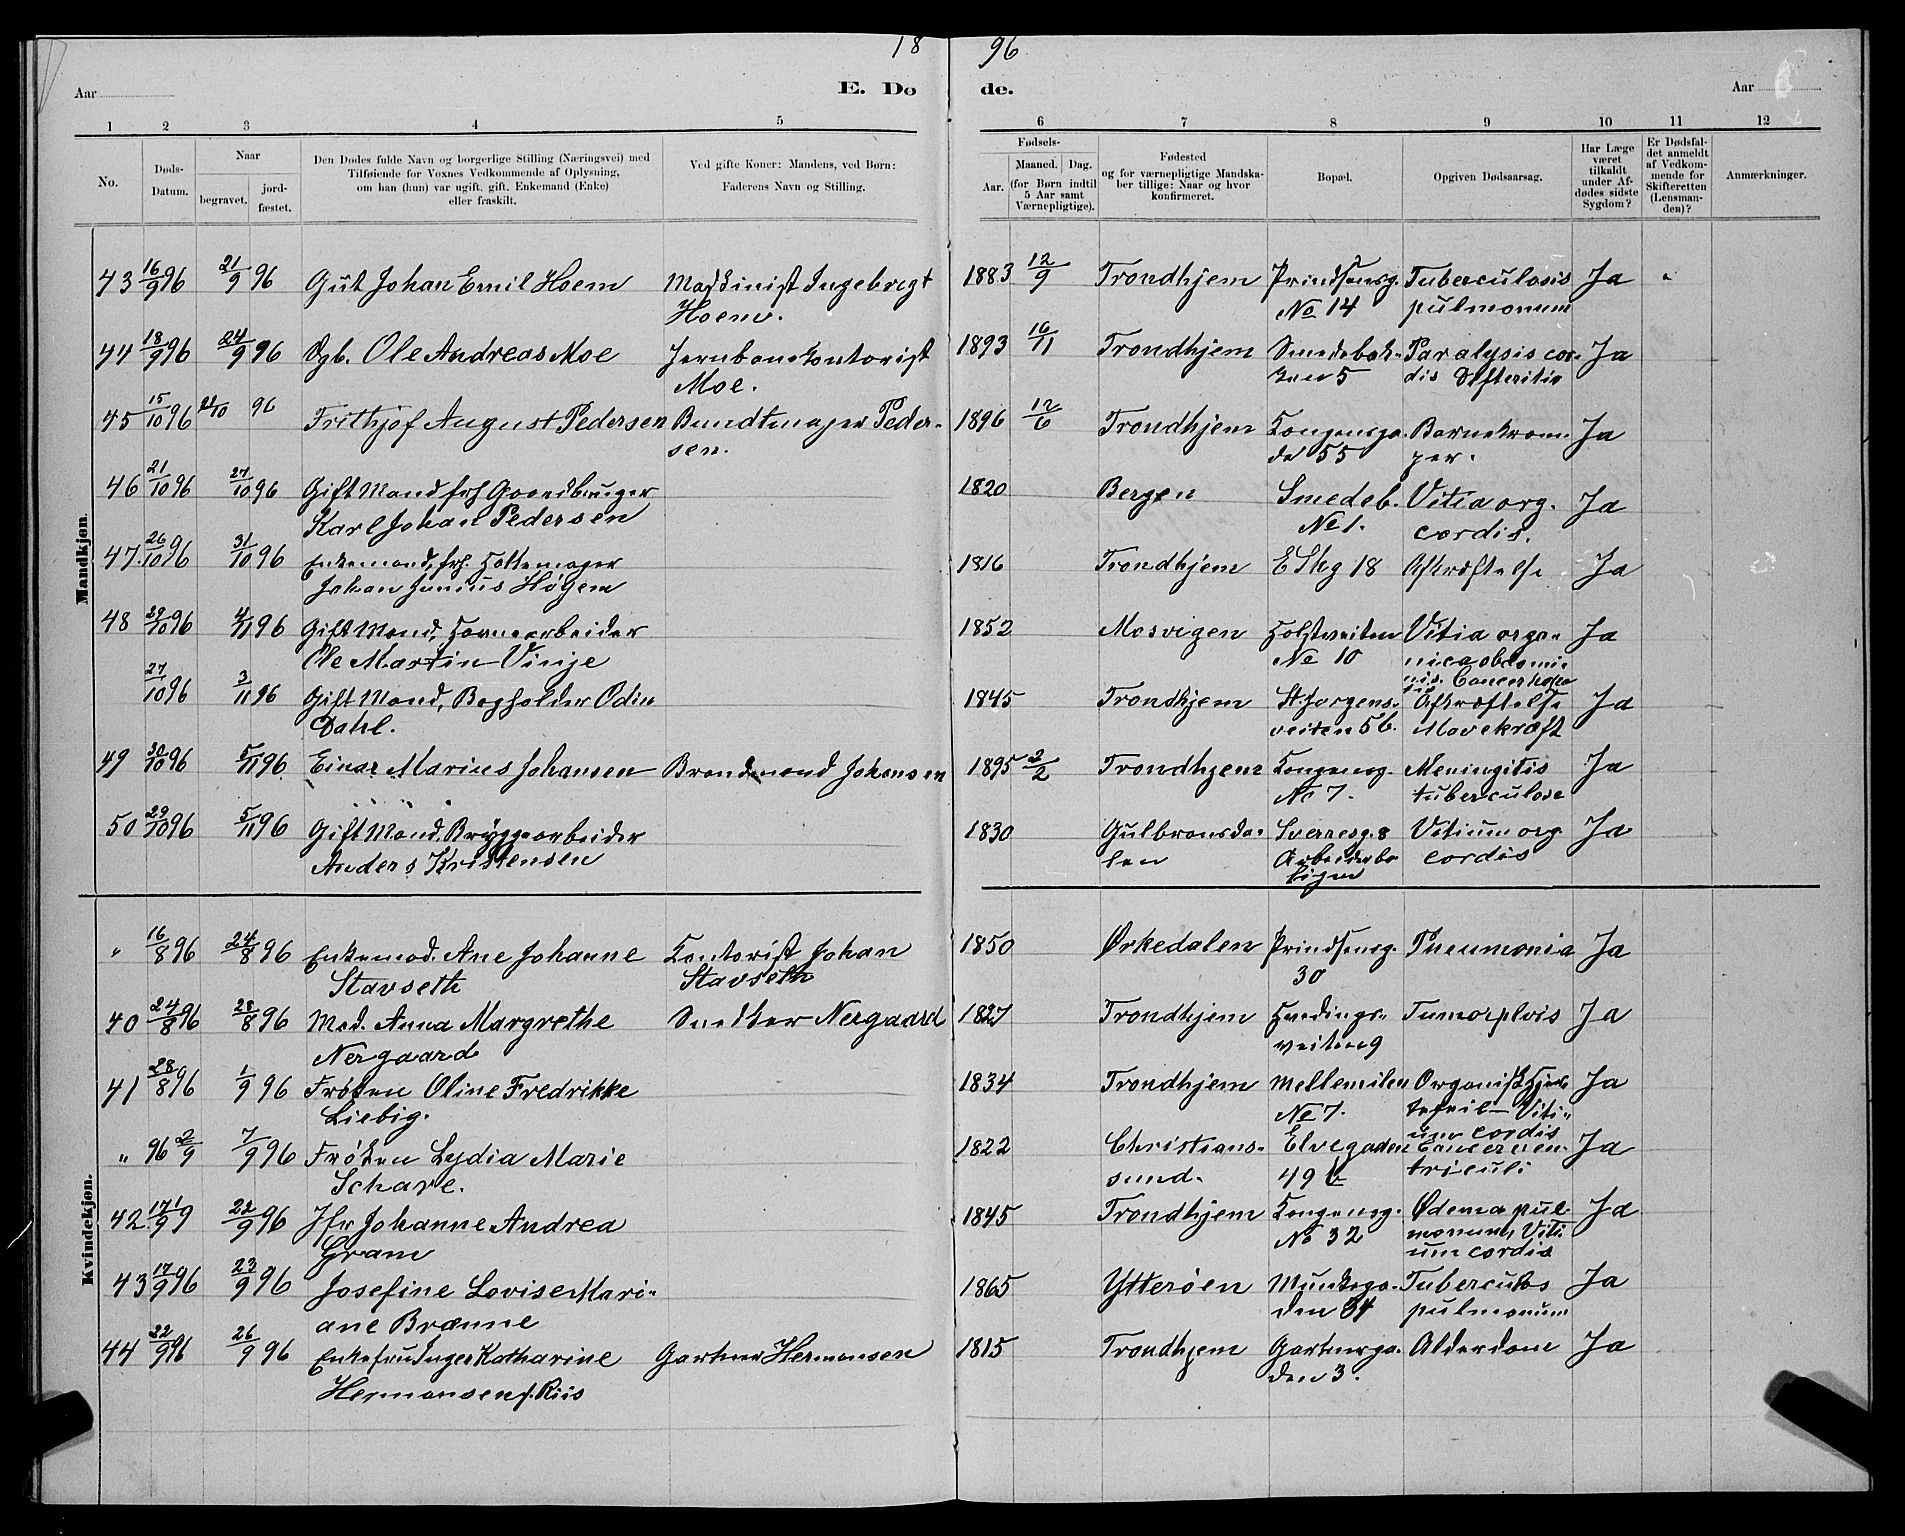 18 96
Aar
E. Dø de.
Aar
1 2 3 4 5 6 7 8 9 10 11 12
No.
Døds-
Datum.
Naar
begravet.
jord-
fæstet.
Den Dødes fulde Navn og borgerlige Stilling (Næringsvei) med
Tilføiende for Voxnes Vedkommende af Oplysning,
om han (hun) var ugift, gift, Enkemand (Enke)
eller fraskilt.
Ved gifte Koner: Mandens, ved Børn:
Faderens Navn og Stilling.
Fødsels-
Aar.
Maaned. Dag.
(for Børn indtil
5 Aar samt
Værnepligtige).
Fødested
og for værnepligtige Mandska-
ber tillige: Naar og hvor
konfirmeret.
Bopæl.
Opgiven Dødsaarsag.
Har Læge
været
tilkaldt
under Af-
dødes sidste
Sygdom?
Er Dødsfal-
det anmeldt
af Vedkom-
mende for
Skifteretten
(Lensman-
den)?
Anmærkninger.
Mandkjøn.
43 16/9 96 21/9 96 Gut Johan Emil Hoem Maskinist Ingebrigt 1883 12/9 Trondhjem Prindsensg. Tuberculosis Ja "
Hoem. No 14 pulmonum
44 18/9 96 24/9 96 Dgb. Ole Andreas Moe Jernbanekontorist 1893 Trondhjem Smedebak- Paralysis cor- Ja
Moe. ken 5 dis Difteritis
45 15/10 96 96 Frithjof August Pedersen Bundtmager Peder- 1896 12/6 Trondhjem Kongensga- Barnekram- Ja
sen. de 55 per.
46 21/10 96 27/10 96 Gift Mand frh Gaardbruger 1820 Bergen Smedeb. Vitia org. Ja
Karl Johan Pedersen No 1. cordis.
47. 26/10 96 31/10 96 Enkemand, frh. Hattemager 1816 Trondhjem E Skg 18 Afkræftelse Ja
Johan Junius Høgem
48 29/10 96 4/11 96 Gift Mand, Havnearbeider 1852 Mosvigen Holstveiten Vitia orga- Ja
Ole Martin Vinje No 10 nica abdomi-
nis. Cancer
27/10 96 3/11 96 Gift Mand, Bogholder Odin 1845 Trondhjem St. Jørgens- Afkræftelse Ja
Dahl. veiten 5b. Mavekræft
49 30/10 96 5/11 96. Einar Marius Johansen Brandmand Johansen 1895 2/2 Trondhjem Kongensg. Meningitis Ja
No 7. tuberculose
50 29/10 96 5/11 96 Gift Mand. Bryggearbeider 1830 Gulbransda- Sverresg. 8 Vitium org. Ja
Anders Kristensen len Arbeiderbo cordis
ligen
Kvindekjøn.
" 16/8 96 24/8 96 Enkemad. Ane Johanne Kontorist Johan 1850 Ørkedalen Prindsensg. Pneumonia Ja
Stavseth Stavseth 30
40 24/8 96 28/8 96 Mad. Anna Margrethe Snedker Nergaard 1827 Trondhjem Tumor plvis Ja
Nergaard veiten 9
41 28/8 96 1/9 96 Frøken Oline Fredrikke 1834 Trondhjem Mellemilen Organisk Hjer- Ja
Liebig. No 7. tefeil - Viti-
um cordis
" 96 2/9 7/9 96 Frøken Lydia Marie 1822 Christians- Elvegaden Cancer ven- Ja
sund. 49 b triculi
42. 17/9 9 22/9 96 Jfr Johanne Andrea 1845 Trondhjem Kongensg. Ødema pul Ja
Gram No 32 monum, Viti-
um cordis
43 17/9 96 23/9 96 Josefine Lovise Mari- 1865 Ytterøen Munkega- Tuberculos Ja
ane Brænne den 34 pulmonum
44 22/9 96 26/9 96 Enkefru Inger Katharine Gartner Hermansen 1815 Trondhjem Gartnerga- Alderdom Ja
Hermansen f. Riis den 3.